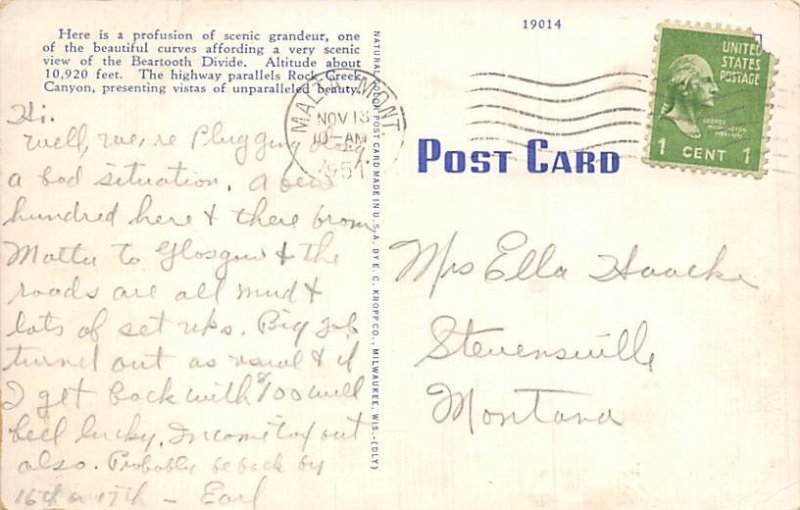 Here is a profusion of scenic grandeur, one
of the beautiful curves affording a very scenic
view of the Beartooth Divide. Altitude about
10,920 feet. The highway parallels Rock Creek
Canyon, presenting vistas of unparalleled beauty.
Hi.
Well, we're Plugging along
a bad situation. A few
hundred here & there from
Malta to Glasgow & the
roads are all mud &
lots of set ups. Big job
turned out as usual & if
I get back with $100 will
feel lucky. Income tax out
also. Probably be back by
16th or 17th - Earl
NATURAL COLOR POST CARD MADE IN U. S. A. BY E. C. KROPP CO., MILWAUKEE, WIS.-(DLY)
19014
MALTA MONT
NOV 13
10-AM
1951
UNITED
STATES
POSTAGE
GEORGE
WASHINGTON
1 CENT 1
POST CARD
Mrs Ella Haacke
Stevensville
Montana